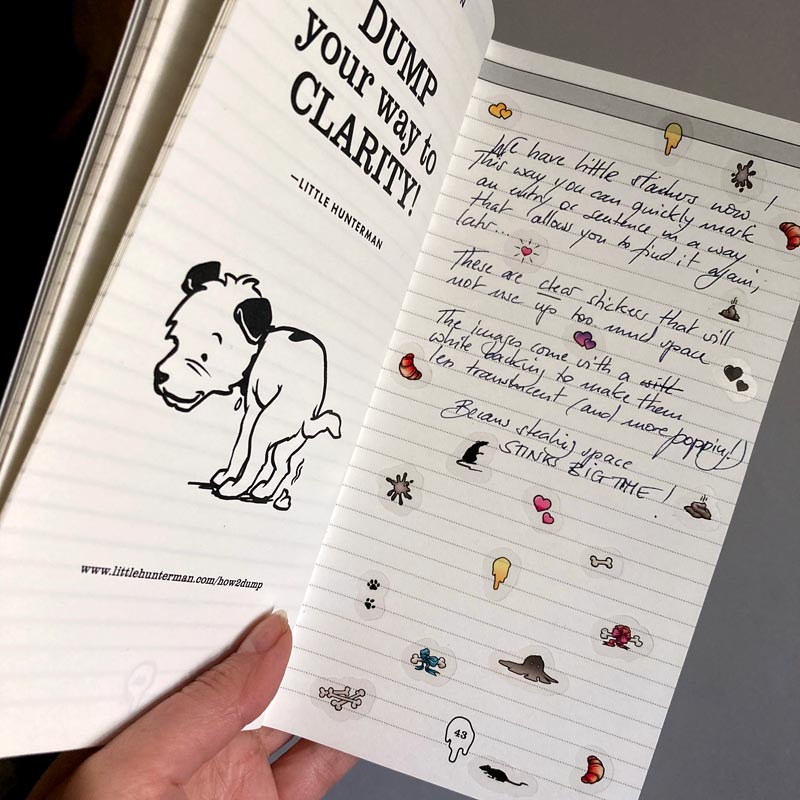 DUMP
your way to
CLARITY!
—LITTLE HUNTERMAN
www.littlehunterman.com/how2dump
We have little stickers now!
This way you can quickly mark
an entry or sentence in a way
that allows you to find it again,
later...
These are clear stickers that will
not use up too much space
The images come with a white
white backing to make them
less translucent (and more poppin'!)
Because stealing space
STINKS BIG TIME!
43